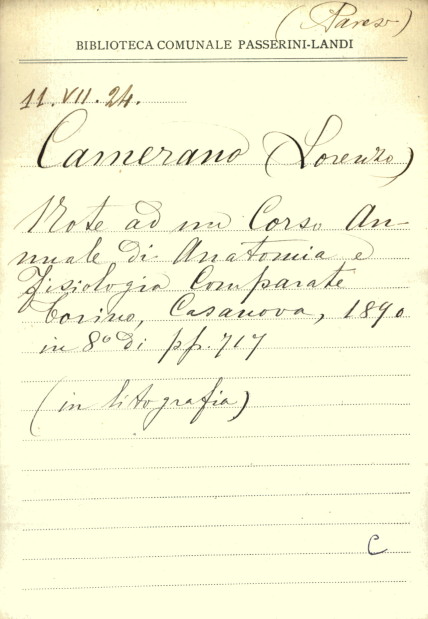 (Pareso)
BIBLIOTECA COMUNALE PASSERINI-LANDI
11.VII.24.
Camerano (Lorenzo)
Note ad un Corso An-
nuale di Anatomia e
Fisiologia Comparate
Torino, Casanova, 1890
in 8º di pp. 717
(in litografia)
C